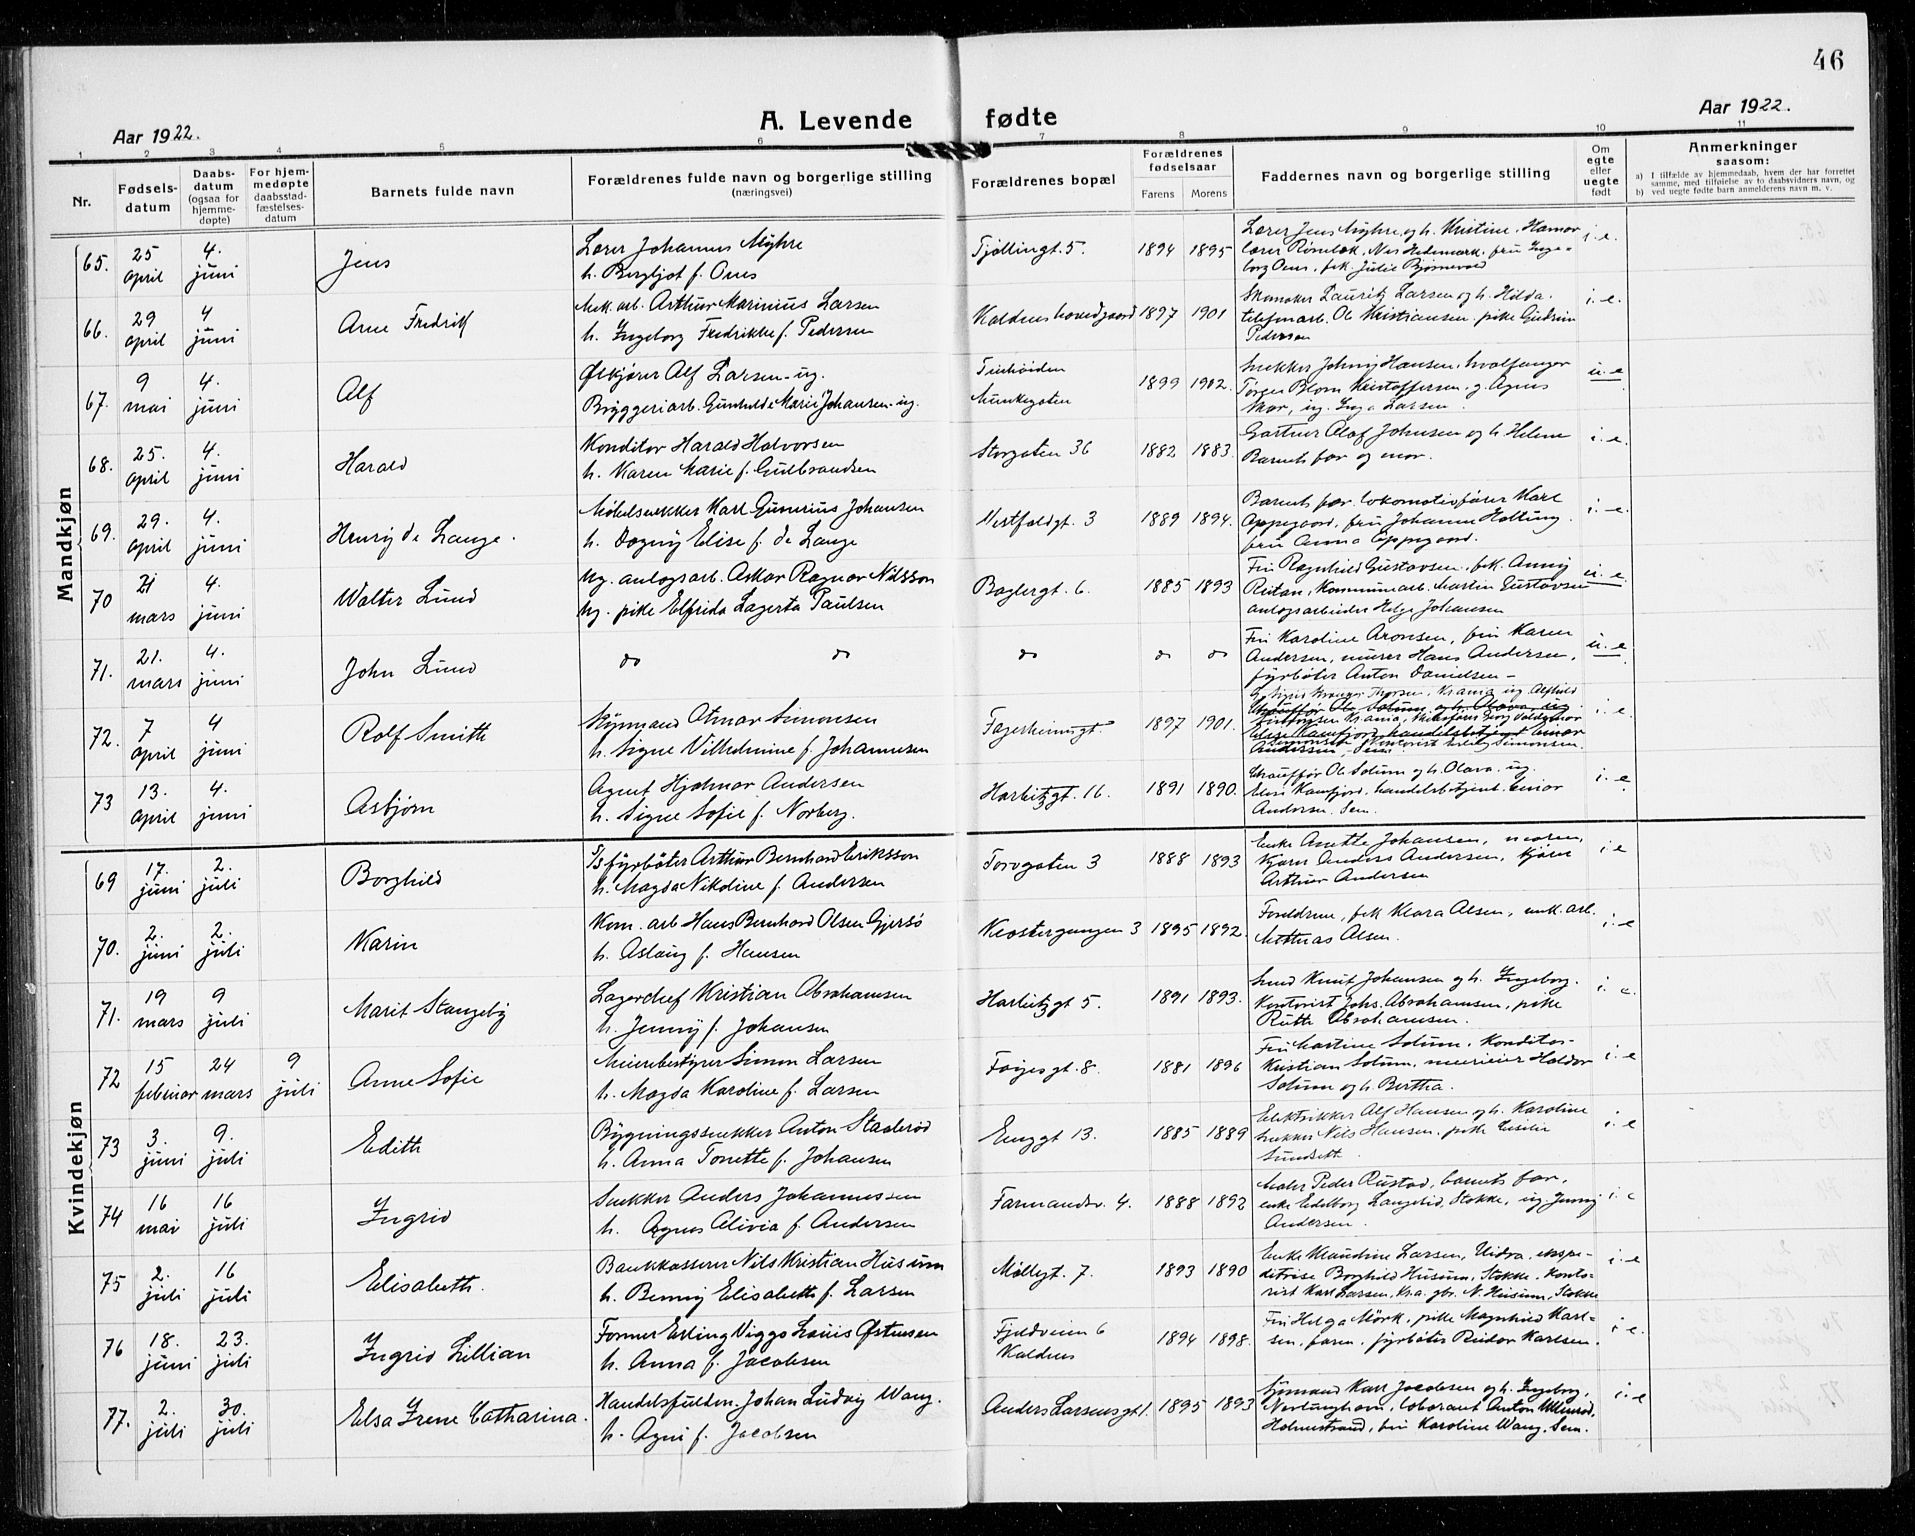 46
Aar 1922.
A. Levende fødte
Aar 1922.
1 2 3 4 5 6 7 8 9 10 11
Nr.
Fødsels-
datum
Daabs-
datum
(ogsaa for
hjemme-
døpte)
For hjem-
medøpte
daabsstad-
fæstelses-
datum
Barnets fulde navn
Forældrenes fulde navn og borgerlige stilling
(næringsvei)
Forældrenes bopæl
Forældrenes
fødselsaar
Farens Morens
Faddernes navn og borgerlige stilling
Om
egte
eller
uegte
født
Anmerkninger
saasom:
a) I tilfælde av hjemmedaab, hvem der har forrettet
samme, med tilføielse av to daabsvidners navn, og
b) ved uegte fødte barn anmelderens navn m. v.
Mandkjøn
65. 25 april 4. juni Jens
Lærer Johannes Myhre
h. Bergljot f. Oens
Tjøllingt. 5. 1894 1895
Lærer Jens Myhre og h. Kristine, Hamar
i. e.
66. 29 april 4 juni Arne Fredrik
Mek. arb. Arthur Marinius Larsen
h. Ingeborg Fredrikke f. Pedersen
Kaldnes hovedgaard 1897 1901
Skomaker Lauritz Larsen og h. Hilda.
telefonarb. Ole Kristiansen. pike Gudrun
Pedersen
i. e.
67. 9 mai 4. juni Alf
Ølkjører Alf Larsen - ug.
Bryggeriarb. Gunhilde Marie Johansen - ug.
Munkegaten
1899 1902.
Snekker Johny Hansen, hvalfanger
Jørgen Blom Kristoffersen. g. Agnes
Moe, ug. Inga Larsen.
u. e
68. 25. april 4. juni Harald
Konditor Harald Halvorsen
h. Karen Marie f. Gulbrandsen
Storgaten 36 1882 1883.
Gartner Olaf Johnsen og h. Helene
Barnets far og mor.
i. e.
69. 29. april 4. juni Henry de Lange.
Møbelsnekker Karl Gunerius Johansen
h. Dagny Elise f. de Lange
Vestfoldgt. 3 1889 1894.
Barnets far. lokomotivfører Karl
Oppegaard, fru Johanne Holtung.
fru Anna Oppegaard.
i. e.
70 21 mars 4. juni Walter Lund
Ug. anlogsarb. Oskar Ragnar Nilsson
Ug. pike Elfrida Lagerta Paulsen
Baglergt. 6. 1885 1893
Fru Ragnhild Gustavsen, frk. Anny
Rutan, kommunearb. Martin Gustavsen
anlogsarbeider Helge Johansen
u. e.
71. 21. mars 4. juni John Lund
do do do do do
Fru Karoline Aronsen, fru Karen
Andersen, murer Hans Andersen,
fyrbøter Anton Danielsen -
u. e
72. 7 april 4 juni Rolf Smith
Styrmand Otmar Simonsen
h. Signe Vilhelmine f. Johannesen
Fagerheimgt. 1897 1901.
i. e.
73 13. april 4. juni Asbjørn
Agent Hjalmar Andersen
h. Signe Sofie f. Norberg.
Harbitzgt. 16. 1891 1890.
Chauffør Ole Solum og h. Olava. ug.
Elise Kamfjord. handelsbetjent Einar
Andersen. Sem.
i. e.
Kvindekjøn
69 17. juni 2. juli Borghild
S/s fyrbøter Arthur Bernhard Eriksson
h. Magda Nikoline f. Andersen
Torvgaten 3 1888 1893
Enke Anette Johansen, moren,
Bjørn Anders Andersen,
Arthur Andersen
i e
70. 2. juni 2. juli Karin
Kom. arb Hans Bernhard Olsen Gjersø
h. Aslaug f. Hansen
Klostergangen 3 1895 1892.
Foreldrene, frk Klara Olsen, mek. arb.
Mathias Olsen.
i. e
71. 19 mars 9 juli Marit Stangeby
Lagerchef Kristian Abrahamsen
h. Jenny f. Johansen
Harbitzgt 5. 1891 1893.
Smed Knut Johansen og h. Ingeborg.
Kontorist Johs. Abrahamsen, pike
Ruth Abrahamsen.
i. e.
72 15 februar 24 mars 9 juli Anne Sofie
Meieribestyrer Simon Larsen
h. Magda Karoline f. Larsen
Føiesgt. 8. 1881 1896
Fru Martine Solum, Konditor
Kristian Solum, meierier Haldor
Solum og h. Bertha.
i. e
73 3. juni 9. juli Edith
Bygningssnekker Anton Staalerød
h. Anna Tonette f. Johansen
Enggt 13. 1885 1889
Elektrikker Alf Hansen og h. Karoline
Snekker Nils Hansen. pike Cecilie
Sundseth.
i. e
74 16 mai 16 juli Ingrid
Snekker Anders Johannessen
h. Agnes Alivia f. Andersen
Farmandsv. 4. 1888 1892
Maler Peder Rustad, barnets far,
enke Edelborg Langelid, Stokke, ug. Jenny
Andersen.
i. e
75 2. juli 16 juli Elisabeth.
Bankkasserer Nils Kristian Husum
h. Benny Elisabeth f. Larsen
Møllegt. 7. 1893 1890
Enke Klaudine Larsen, Hidra. ekspe-
ditrise Borghild Husum, Stokke. Konto-
rist Karl Larsen, Kr.a. gbr. N. Husum, Stokke
i. e
76 18. juni 23. juli Ingrid Lillian
Former Erling Viggo Louis Østensen
h. Anna f. Jacobsen
Fjeldveien 6
Kaldnes
1894 1898.
Fru Helga Mörk, pike Magnhild Karl-
sen, faren, fyrbøter Reidar Karlsen.
i e.
77. 2. juli 30. juli Elsa Irene Catharina.
Handelsfuldm. Johan Ludvig Wang.
h. Agni f. Jacobsen
Anders Larsensgt 1. 1895 1893
Sjømand Karl Jacobsen og h. Ingeborg,
Nøtlunghavn, laborant Anton Ullerød,
Holmestrand, fru Karoline Wang, Sem.
i. e